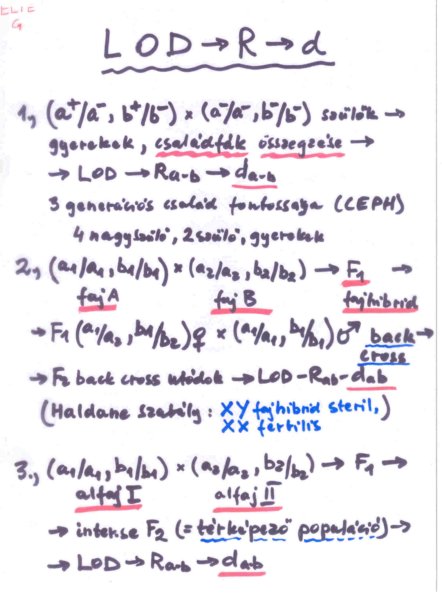 LOD→R→d
1., (a⁺/a⁻, b⁺/b⁻) × (a⁻/a⁻, b⁻/b⁻) szülők →
gyerekek, családfák összegzése →
→ LOD → Ra-b → da-b
3 generációs család fontossága (CEPH)
4 nagyszülő, 2 szülő, gyerekek
2., (a1/a1, b1/b1) × (a2/a2, b2/b2) → F1 →
faj A faj B fajhibrid
→ F1 (a1/a2, b1/b2)♀ × (a1/a1, b1/b1)♂ back→
cross
→ F2 back cross utódok → LOD–Rab–dab
(Haldane szabály: XY fajhibrid steril,)
XX fertilis
3., (a1/a1, b1/b1) × (a2/a2, b2/b2) → F1 →
alfaj I alfaj II
→ interse F2 (= térképező populáció) →
→ LOD → Ra-b → da-b